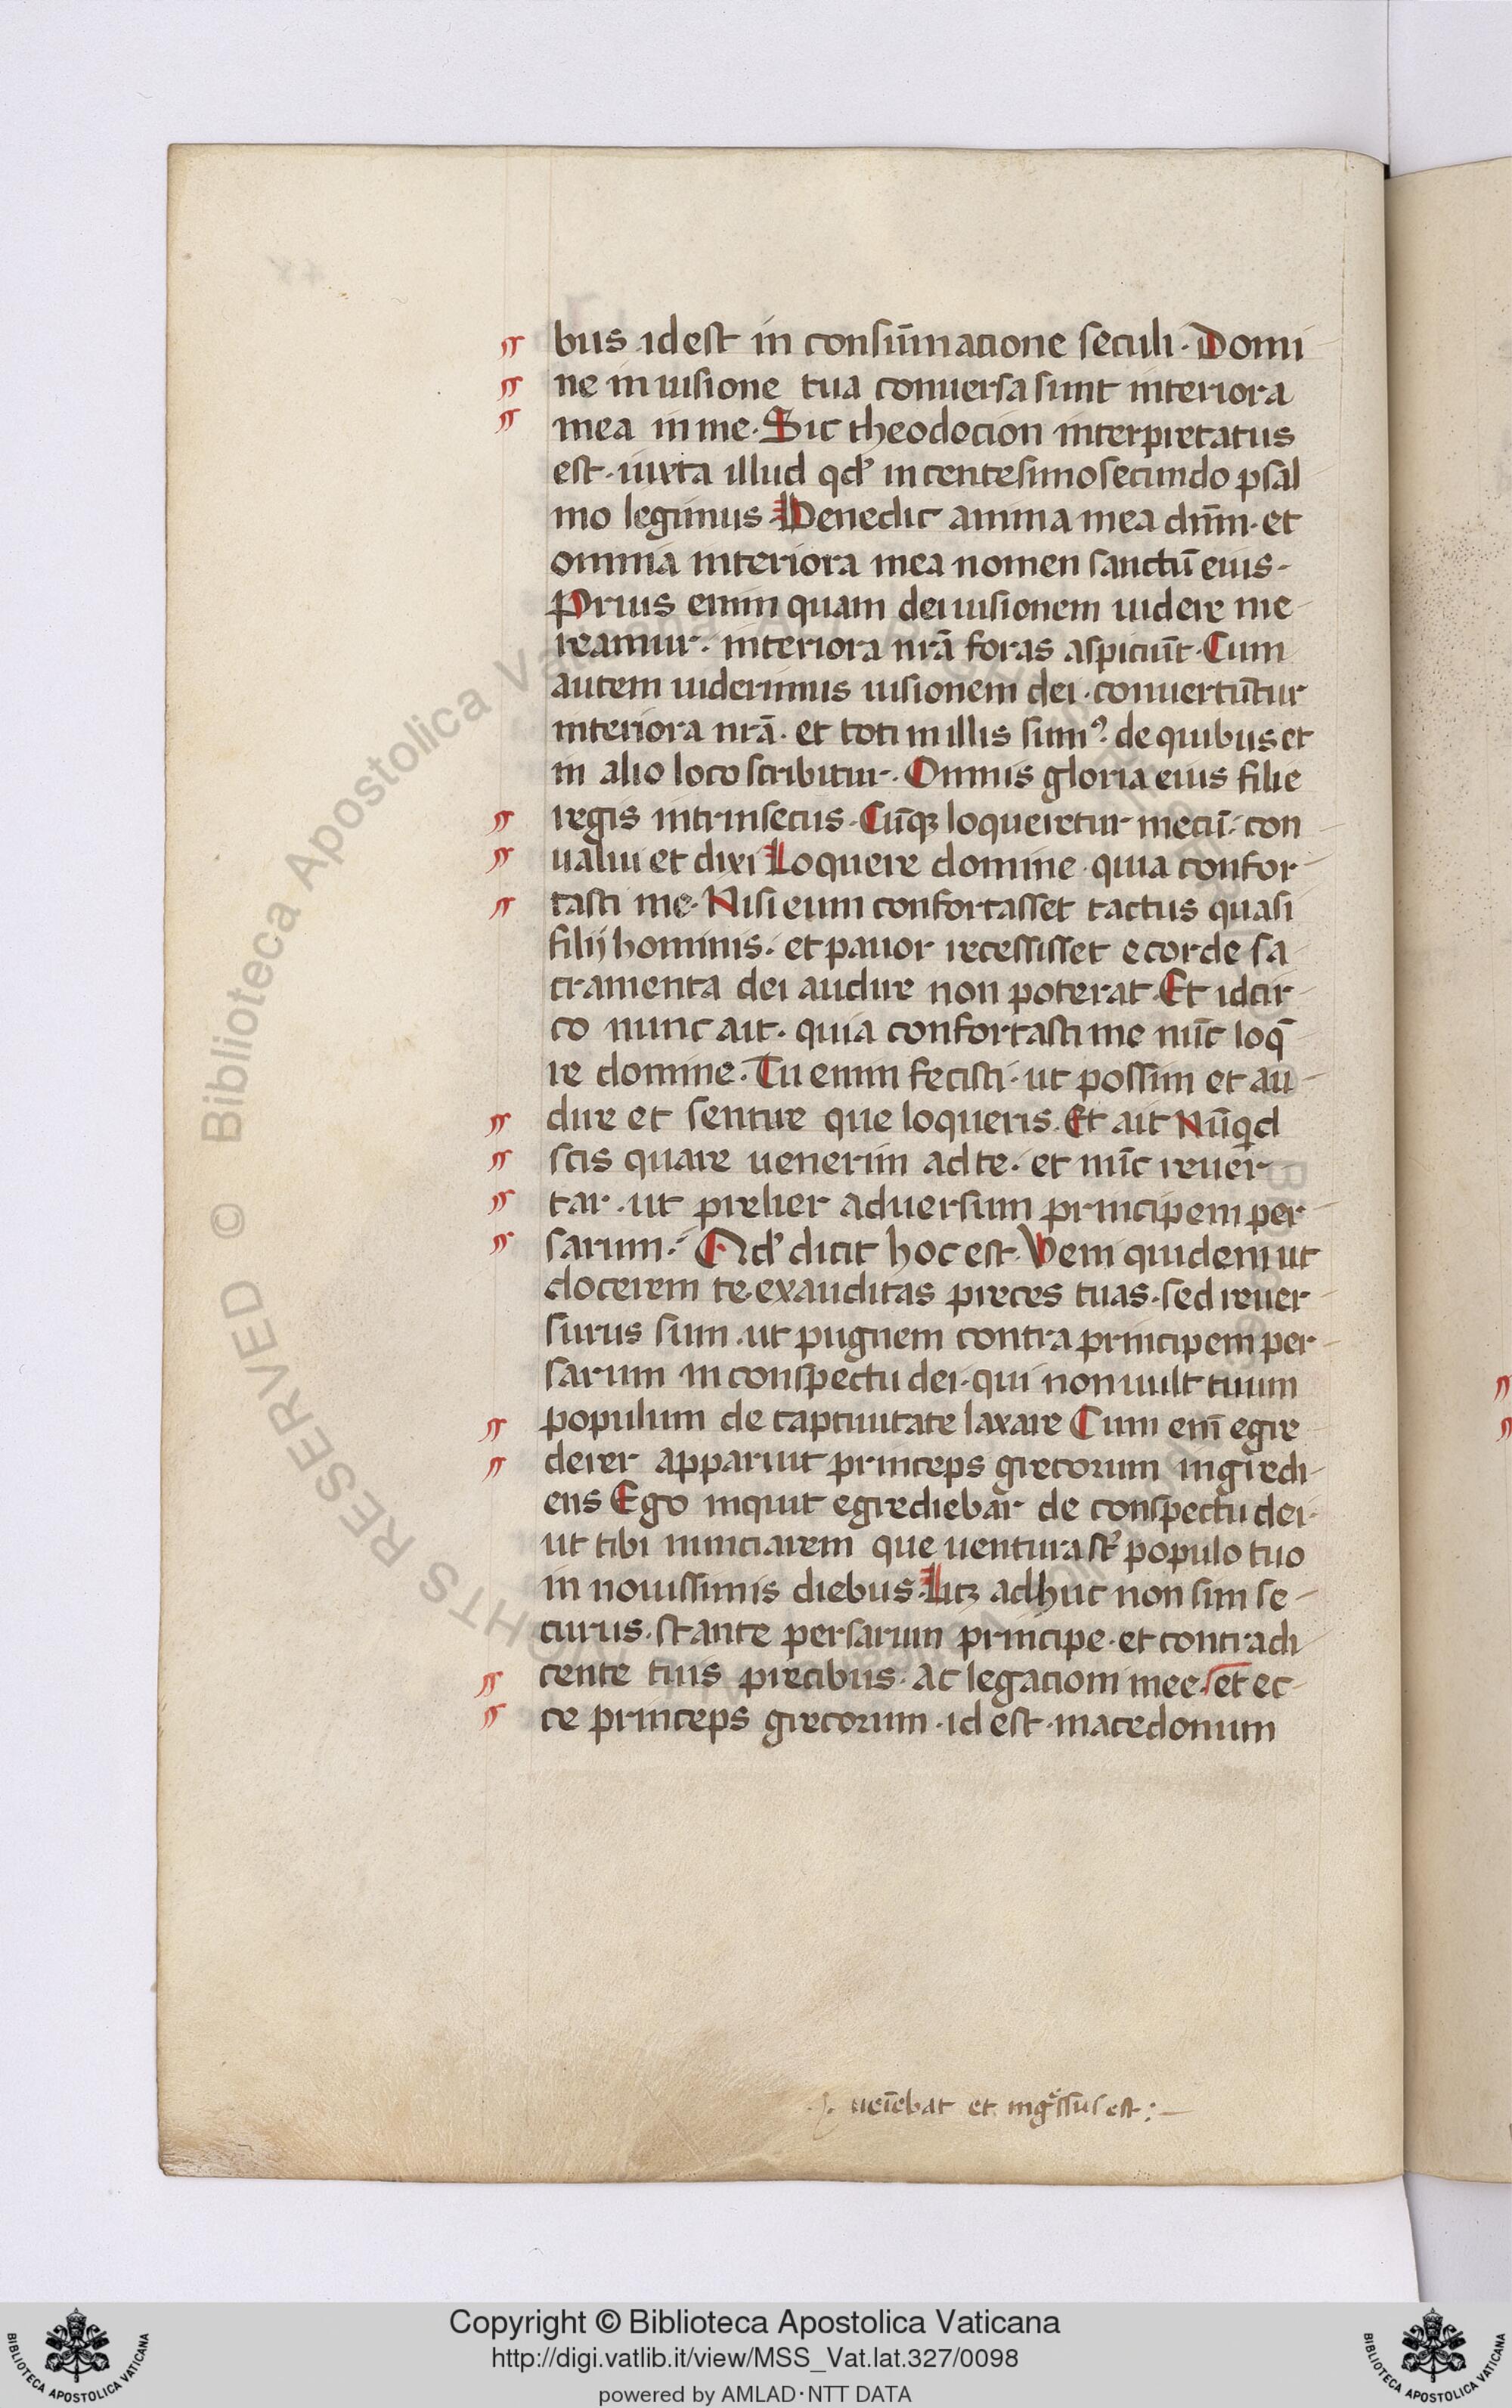 bus idest in consūmatione seculi. Domi
ne in uisione tua conuersa sunt interiora
mea in me. Sic theodocion interpretatus
est. iuxta illud qd' in centesimo secundo psal
mo legimus. Benedic anima mea dn̄m. et
omnia interiora mea nomen sanctū eius.
Prius enim quam dei uisionem uidere me
reamur. interiora nrā foras aspiciūt. Cum
autem uiderimus uisionem dei. conuertūtur
interiora nrā. et toti in illis sumꝰ. de quibus et
in alio loco scribitur. Omnis gloria eius filie
regis intrinsecus. Cūqꝫ loqueretur mecū. con
ualui et dixi Loquere domine. quia confor
tasti me. Nisi eum confortasset tactus quasi
filij hominis. et pauor recessisset e corde sa
cramenta dei audire non poterat. Et idcir
co nunc ait. quia confortasti me nūc loq̄
re domine. Tu enim fecisti. ut possim et au
dire et sentire que loqueris. Et ait Nūqd
scis quare uenerim ad te. et nūc reuer
tar. ut prelier aduersum principem per
sarum. Qd' dicit hoc est. Veni quidem ut
docerem te exauditas preces tuas. sed reuer
surus sum. ut pugnem contra principem per
sarum in conspectu dei. qui non uult tuum
populum de captiuitate laxare Cum enī egre
derer apparuit princeps grecorum ingredi
ens Ego inquit egrediebar de conspectu dei.
ut tibi nunciarem que uentura st̄ populo tuo
in nouissimis diebus. Licꝫ adhuc non sim se
curus. stante persarum principe. et contradi
cente tuis precibus. ac legationi mee. et ec
ce princeps grecorum. id est. macedonum
ueīebat et ingssus est :—
Copyright © Biblioteca Apostolica Vaticana
http://digi.vatlib.it/view/MSS_Vat.lat.327/0098
powered by AMLAD·NTT DATA
BIBLIOTECA APOSTOLICA VATICANA
BIBLIOTECA APOSTOLICA VATICANA